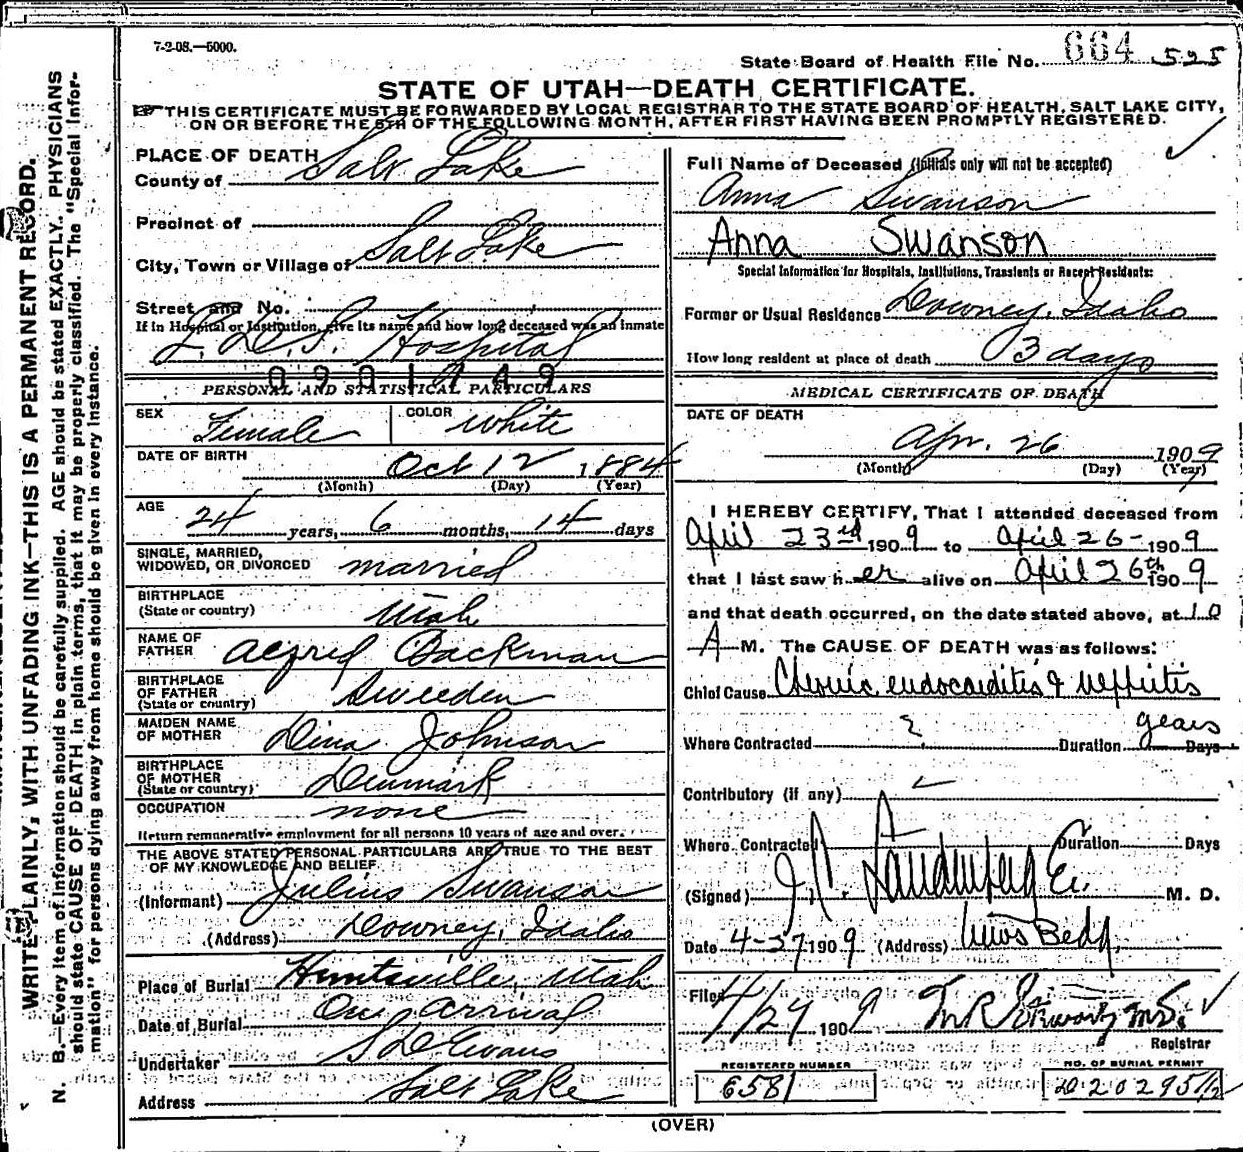 7-2-08.—5000.
State Board of Health File No. 664 525
STATE OF UTAH—DEATH CERTIFICATE.
THIS CERTIFICATE MUST BE FORWARDED BY LOCAL REGISTRAR TO THE STATE BOARD OF HEALTH, SALT LAKE CITY,
ON OR BEFORE THE 5TH OF THE FOLLOWING MONTH, AFTER FIRST HAVING BEEN PROMPTLY REGISTERED.
WRITE PLAINLY, WITH UNFADING INK—THIS IS A PERMANENT RECORD.
N. B.—Every item of information should be carefully supplied. AGE should be stated EXACTLY. PHYSICIANS
should state CAUSE OF DEATH in plain terms, that it may be properly classified. The "Special Infor-
mation" for persons dying away from home should be given in every instance.
PLACE OF DEATH
County of Salt Lake
Precinct of
City, Town or Village of Salt Lake
Street and No.
If in Hospital or Institution, give its name and how long deceased was an inmate
L. D. S. Hospital
0901749
PERSONAL AND STATISTICAL PARTICULARS
SEX Female COLOR White
DATE OF BIRTH Oct 12 1884
(Month) (Day) (Year)
AGE 24 years, 6 months, 14 days
SINGLE, MARRIED,
WIDOWED, OR DIVORCED married
BIRTHPLACE
(State or country) Utah
NAME OF
FATHER Alfred Backman
BIRTHPLACE
OF FATHER
(State or country) Sweeden
MAIDEN NAME
OF MOTHER Dina Johnson
BIRTHPLACE
OF MOTHER
(State or country) Denmark
OCCUPATION none
Return remunerative employment for all persons 10 years of age and over.
THE ABOVE STATED PERSONAL PARTICULARS ARE TRUE TO THE BEST
OF MY KNOWLEDGE AND BELIEF.
(Informant) Julius Swanson
(Address) Downey, Idaho
Place of Burial Huntsville, Utah
Date of Burial On arrival
Undertaker S D Evans
Address Salt Lake
Full Name of Deceased (Initials only will not be accepted)
Anna Swanson
Anna Swanson
Special Information for Hospitals, Institutions, Transients or Recent Residents:
Former or Usual Residence Downey, Idaho
How long resident at place of death 3 days
MEDICAL CERTIFICATE OF DEATH
DATE OF DEATH
Apr. 26 1909
(Month) (Day) (Year)
I HEREBY CERTIFY, That I attended deceased from
April 23rd 1909 to April 26- 1909
that I last saw her alive on April 26th 1909
and that death occurred, on the date stated above, at 10
A M. The CAUSE OF DEATH was as follows:
Chief Cause Chronic endocarditis & Nephritis
Where Contracted ? Duration years Days
Contributory (if any)
Where Contracted Duration Days
(Signed) M. D.
Date 4-27 1909 (Address)
Filed 4/27 1909
Registrar
REGISTERED NUMBER
6581
NO. OF BURIAL PERMIT
(OVER)